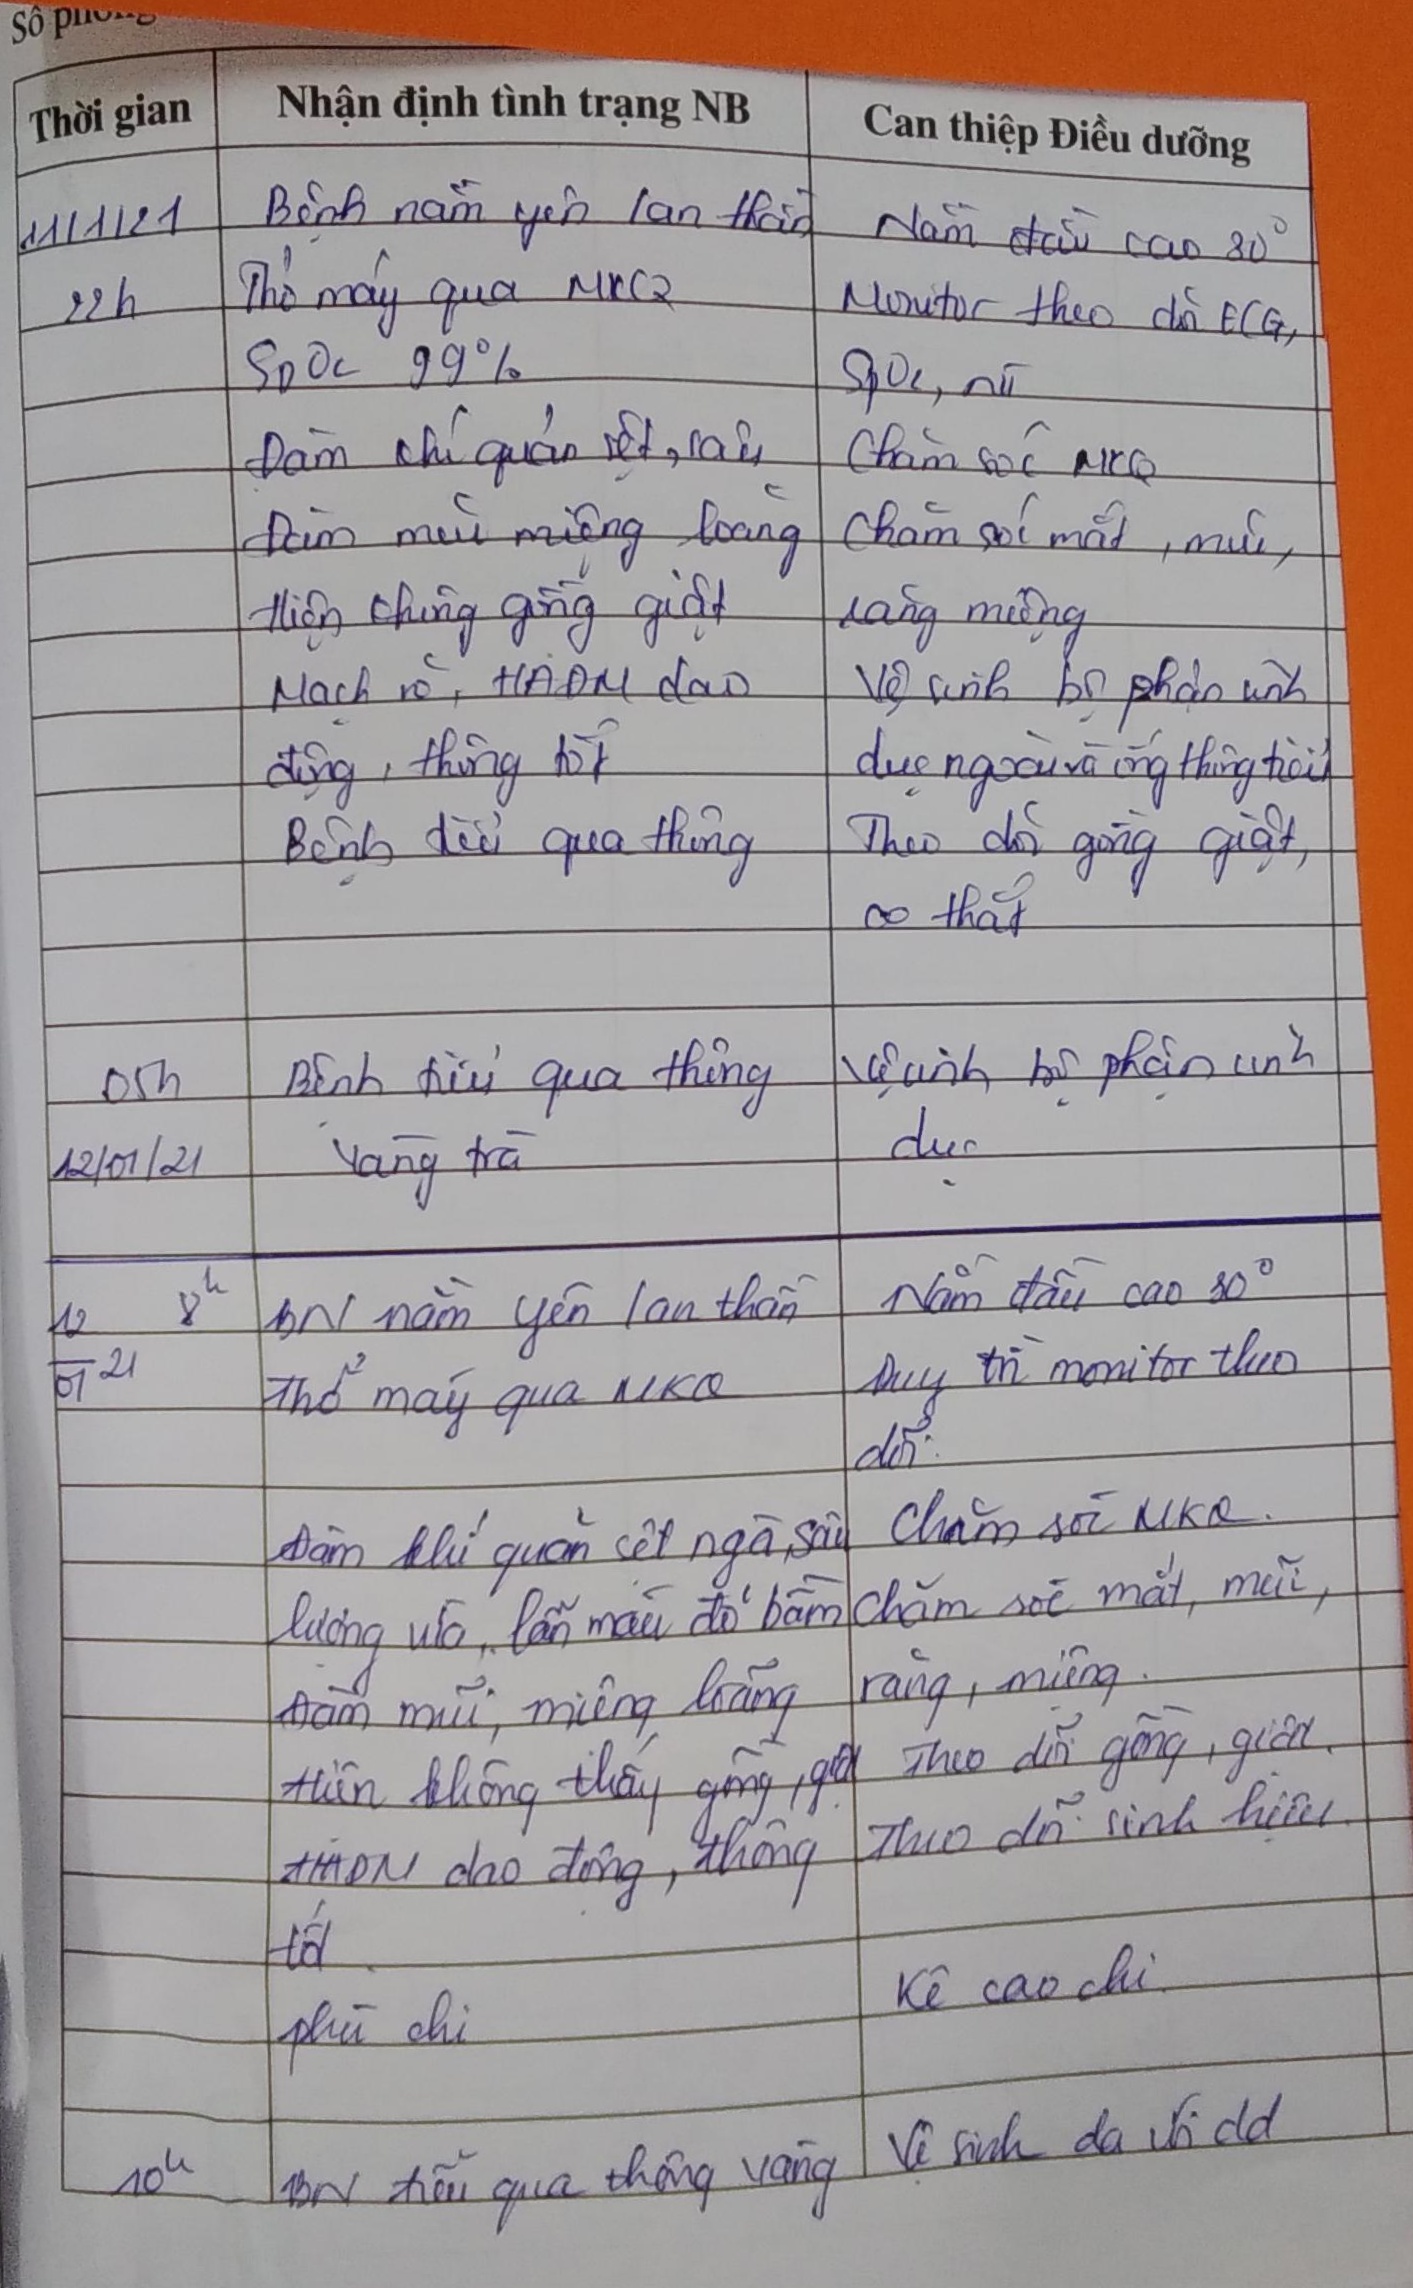 Số phòng
Thời gian
Nhận định tình trạng NB
Can thiệp Điều dưỡng
11/1/21
Bệnh nằm yên lan thần
Nằm đầu cao 30°
22h
Thở máy qua MKQ
Monitor theo dõi ECG,
SpO2 99%
SpO2, nii
Đàm khí quản sệt, sâu
Chăm sóc MKQ
Đàm mũi miệng loãng
Chăm sóc mắt, mũi,
Hiện chưng gồng giật
răng miệng
Mạch rõ, HAĐM dao
Vệ sinh bộ phận sinh
động, thông tốt
dục ngoài và ống thông tiểu
Bệnh tiểu qua thông
Theo dõi gồng giật,
co thắt
05h
Bệnh tiểu qua thông
Vệ sinh bộ phận sinh
12/01/21
vàng trà
dục
12/01 21 8h
BN nằm yên lan thần
Nằm đầu cao 30°
Thở máy qua MKQ
Duy trì monitor theo
dõi.
Đàm khí quản sệt ngà, sâu
Chăm sóc MKQ.
lượng vừa, lẫn máu đỏ bầm
Chăm sóc mắt, mũi,
Đàm mũi, miệng loãng
răng, miệng.
Hiện không thấy gồng, giật
Theo dõi gồng, giật.
HAĐM dao động, thông
Theo dõi sinh hiệu.
tốt.
phù chi
Kê cao chi.
10h
BN tiểu qua thông vàng
Vệ sinh da với dd